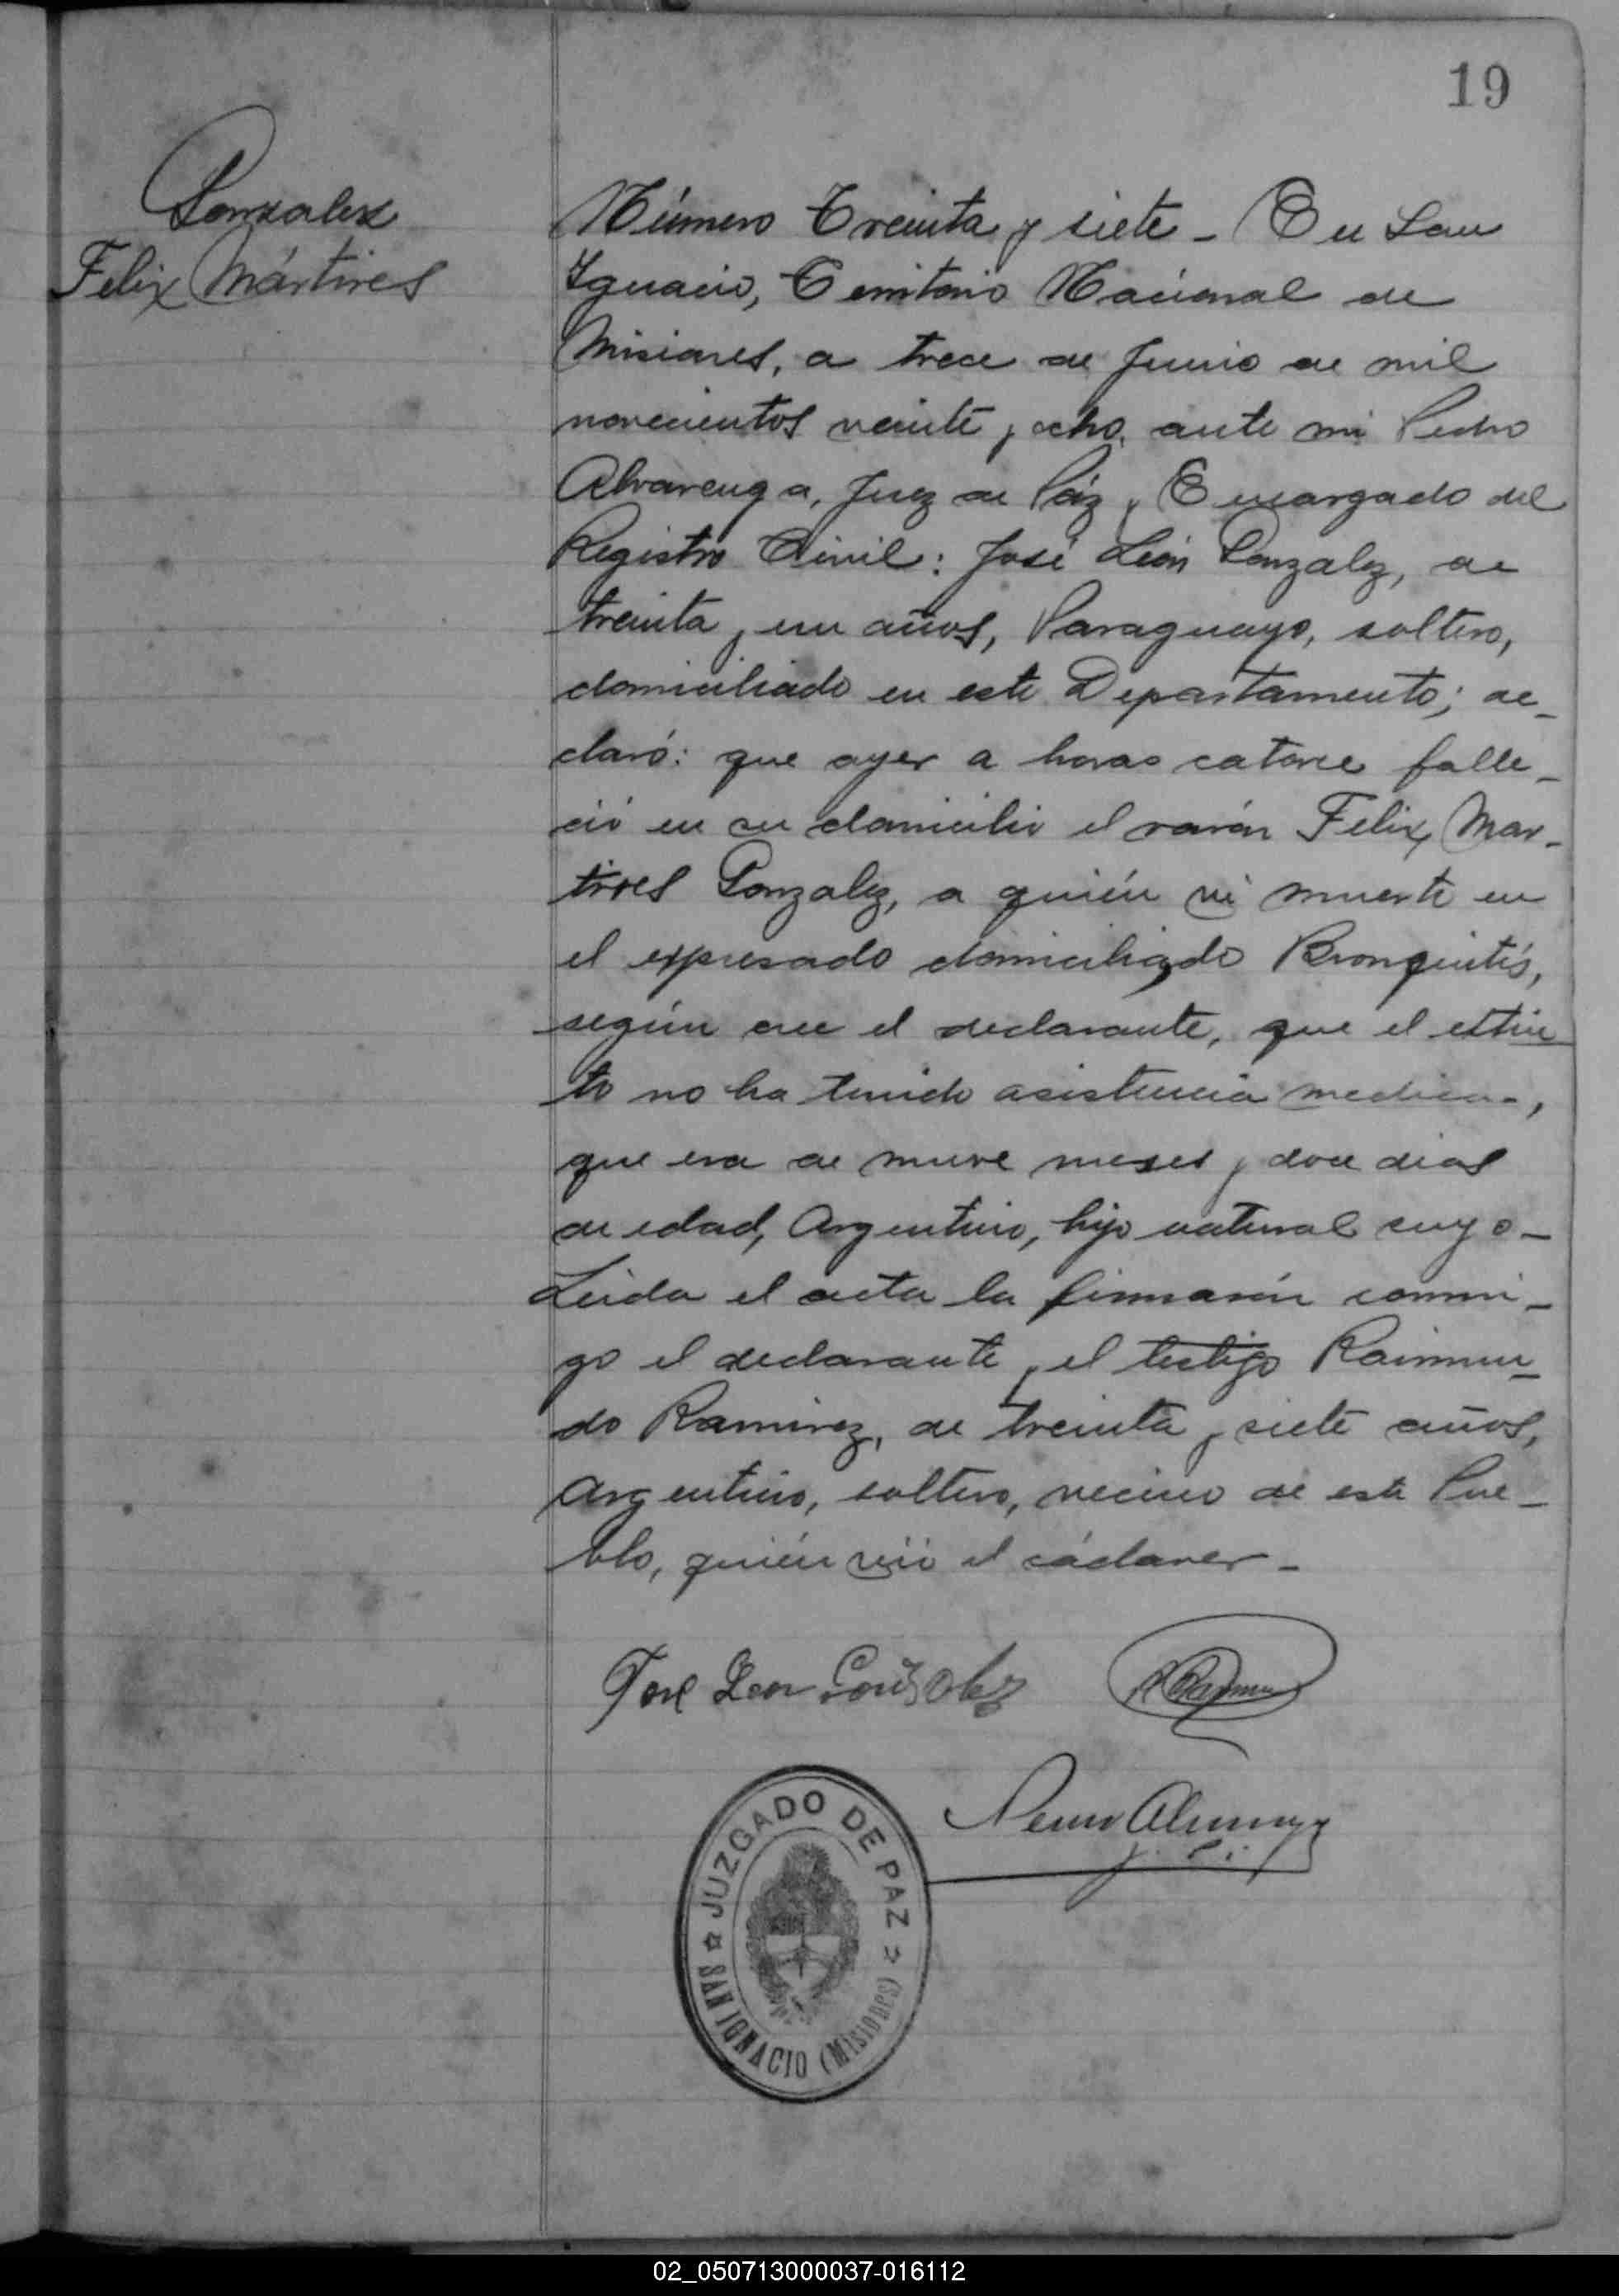 19
Gonzalez
Felix Mártires
Número Treinta y siete - En San
Ignacio, Territorio Nacional de
Misiones, a trece de Junio de mil
novecientos veinte y ocho, ante mi Pedro
Alvarenga, Juez de Páz y Encargado del
Registro Civil: José León Gonzalez, de
treinta y un años, Paraguayo, soltero,
domiciliado en este Departamento; de-
claró: que ayer a horas catorce falle-
ció en su domicilio el varón Felix Mar-
tires Gonzalez, a quién vi muerto en
el expresado domiciliado Bronquitis,
según cree el declarante, que el extin
to no ha tenido asistencia medica,
que era de nueve meses y doce dias
de edad, Argentino, hijo natural suyo-
Leida el acta la firmarón conmi-
go el declarante y el testigo Raimun-
do Ramirez, de treinta y siete años,
Argentino, soltero, vecino de este Pue-
blo, quién vió el cádaver-
Jose Leon Gonzalez
JUZGADO DE PAZ
SAN IGNACIO (Misiones)
02_050713000037-016112